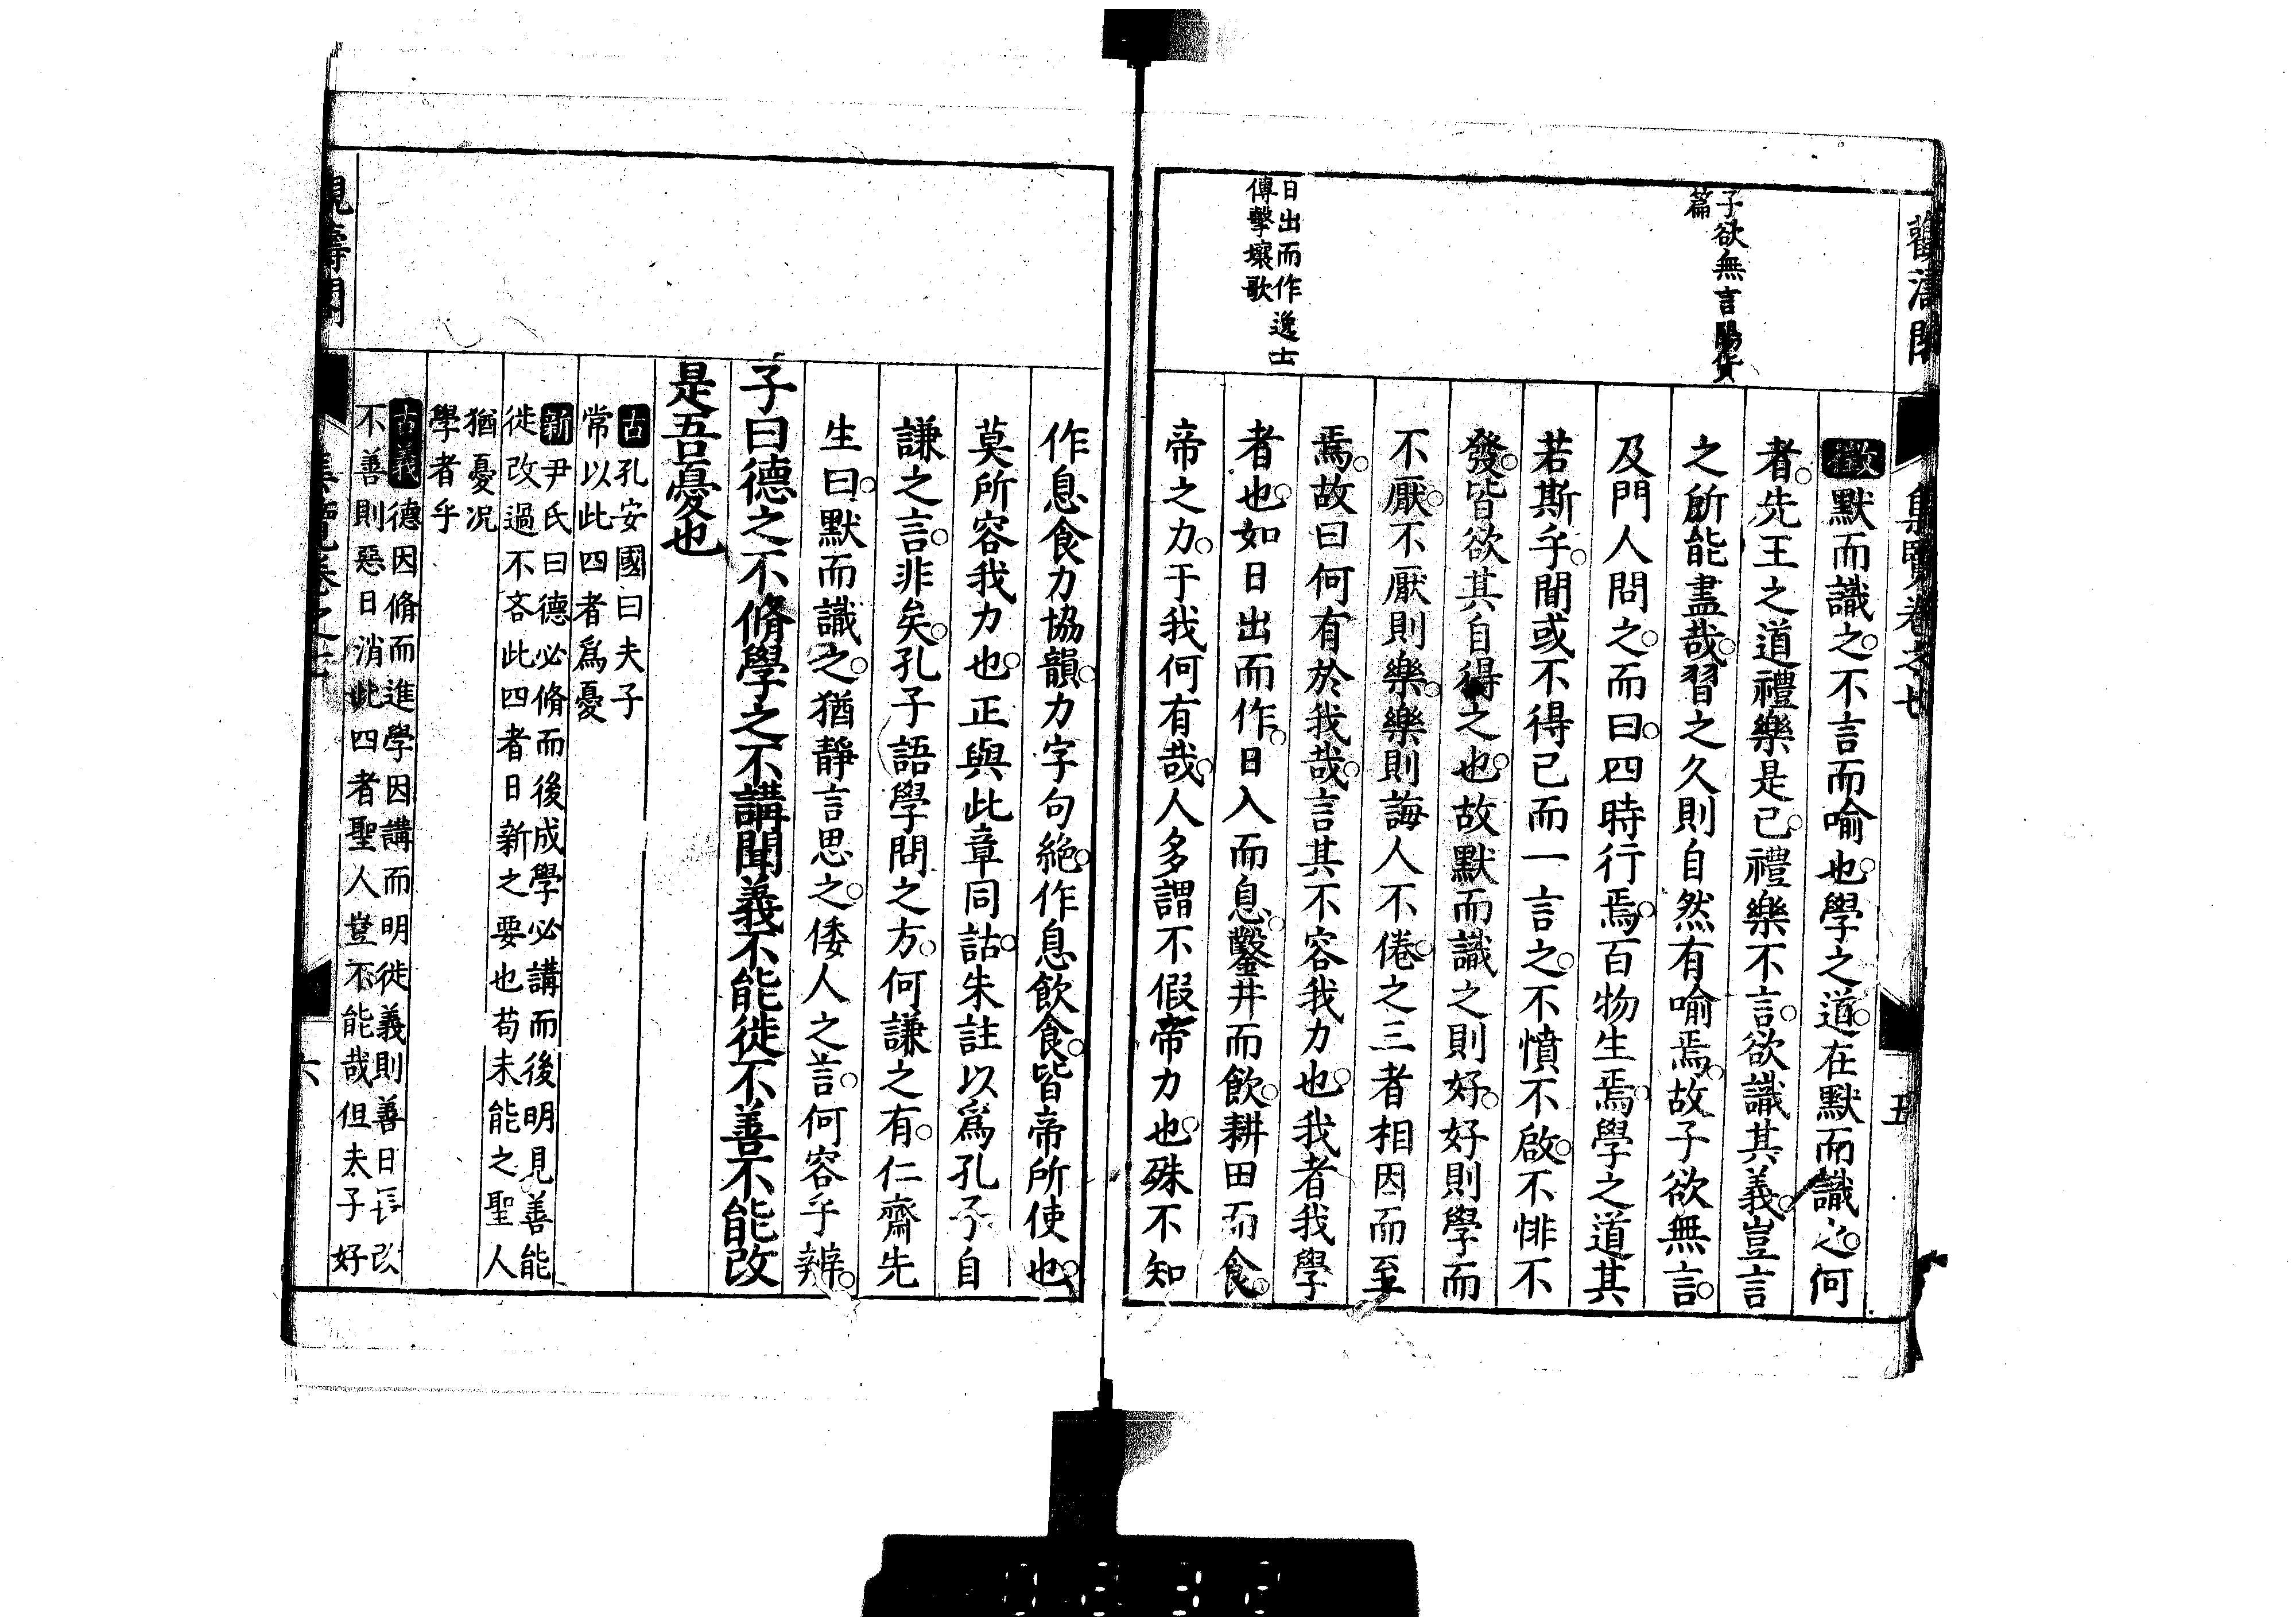 觀濤閣
集覽卷之七
五
子欲無言陽貨
篇
日出而作逸士
傳擊壤歌
徵默而識之○不言而喻也○學之道○在默而識之○何
者○先王之道禮樂是已○禮樂不言○欲識其義○豈言
之所能盡哉○習之久則自然有喻焉○故子欲無言○
及門人問之○而曰○四時行焉○百物生焉○學之道其
若斯乎○間或不得已而一言之○不憤不啟○不悱不
發○皆欲其自得之也○故默而識之則好○好則學而
不厭○不厭則樂○樂則誨人不倦○之三者相因而至
焉○故曰何有於我哉○言其不容我力也○我者我學
者也○如日出而作○日入而息○鑿井而飲○耕田而食○
帝之力○于我何有哉○人多謂不假帝力也○殊不知
作息食力協韻○力字句絶○作息飲食○皆帝所使也○
莫所容我力也○正與此章同詁○朱註以爲孔子自
謙之言○非矣○孔子語學問之方○何謙之有○仁齋先
生曰○默而識之○猶靜言思之○倭人之言○何容乎辨○
子曰德之不脩學之不講聞義不能徙不善不能改
是吾憂也
古孔安國曰夫子
常以此四者爲憂
新尹氏曰德必脩而後成學必講而後明見善能
徙改過不吝此四者日新之要也苟未能之聖人
猶憂况
學者乎
古義德因脩而進學因講而明徙義則善日長改
不善則惡日消此四者聖人豈不能哉但夫子好
觀濤閣
集覽卷之七
六